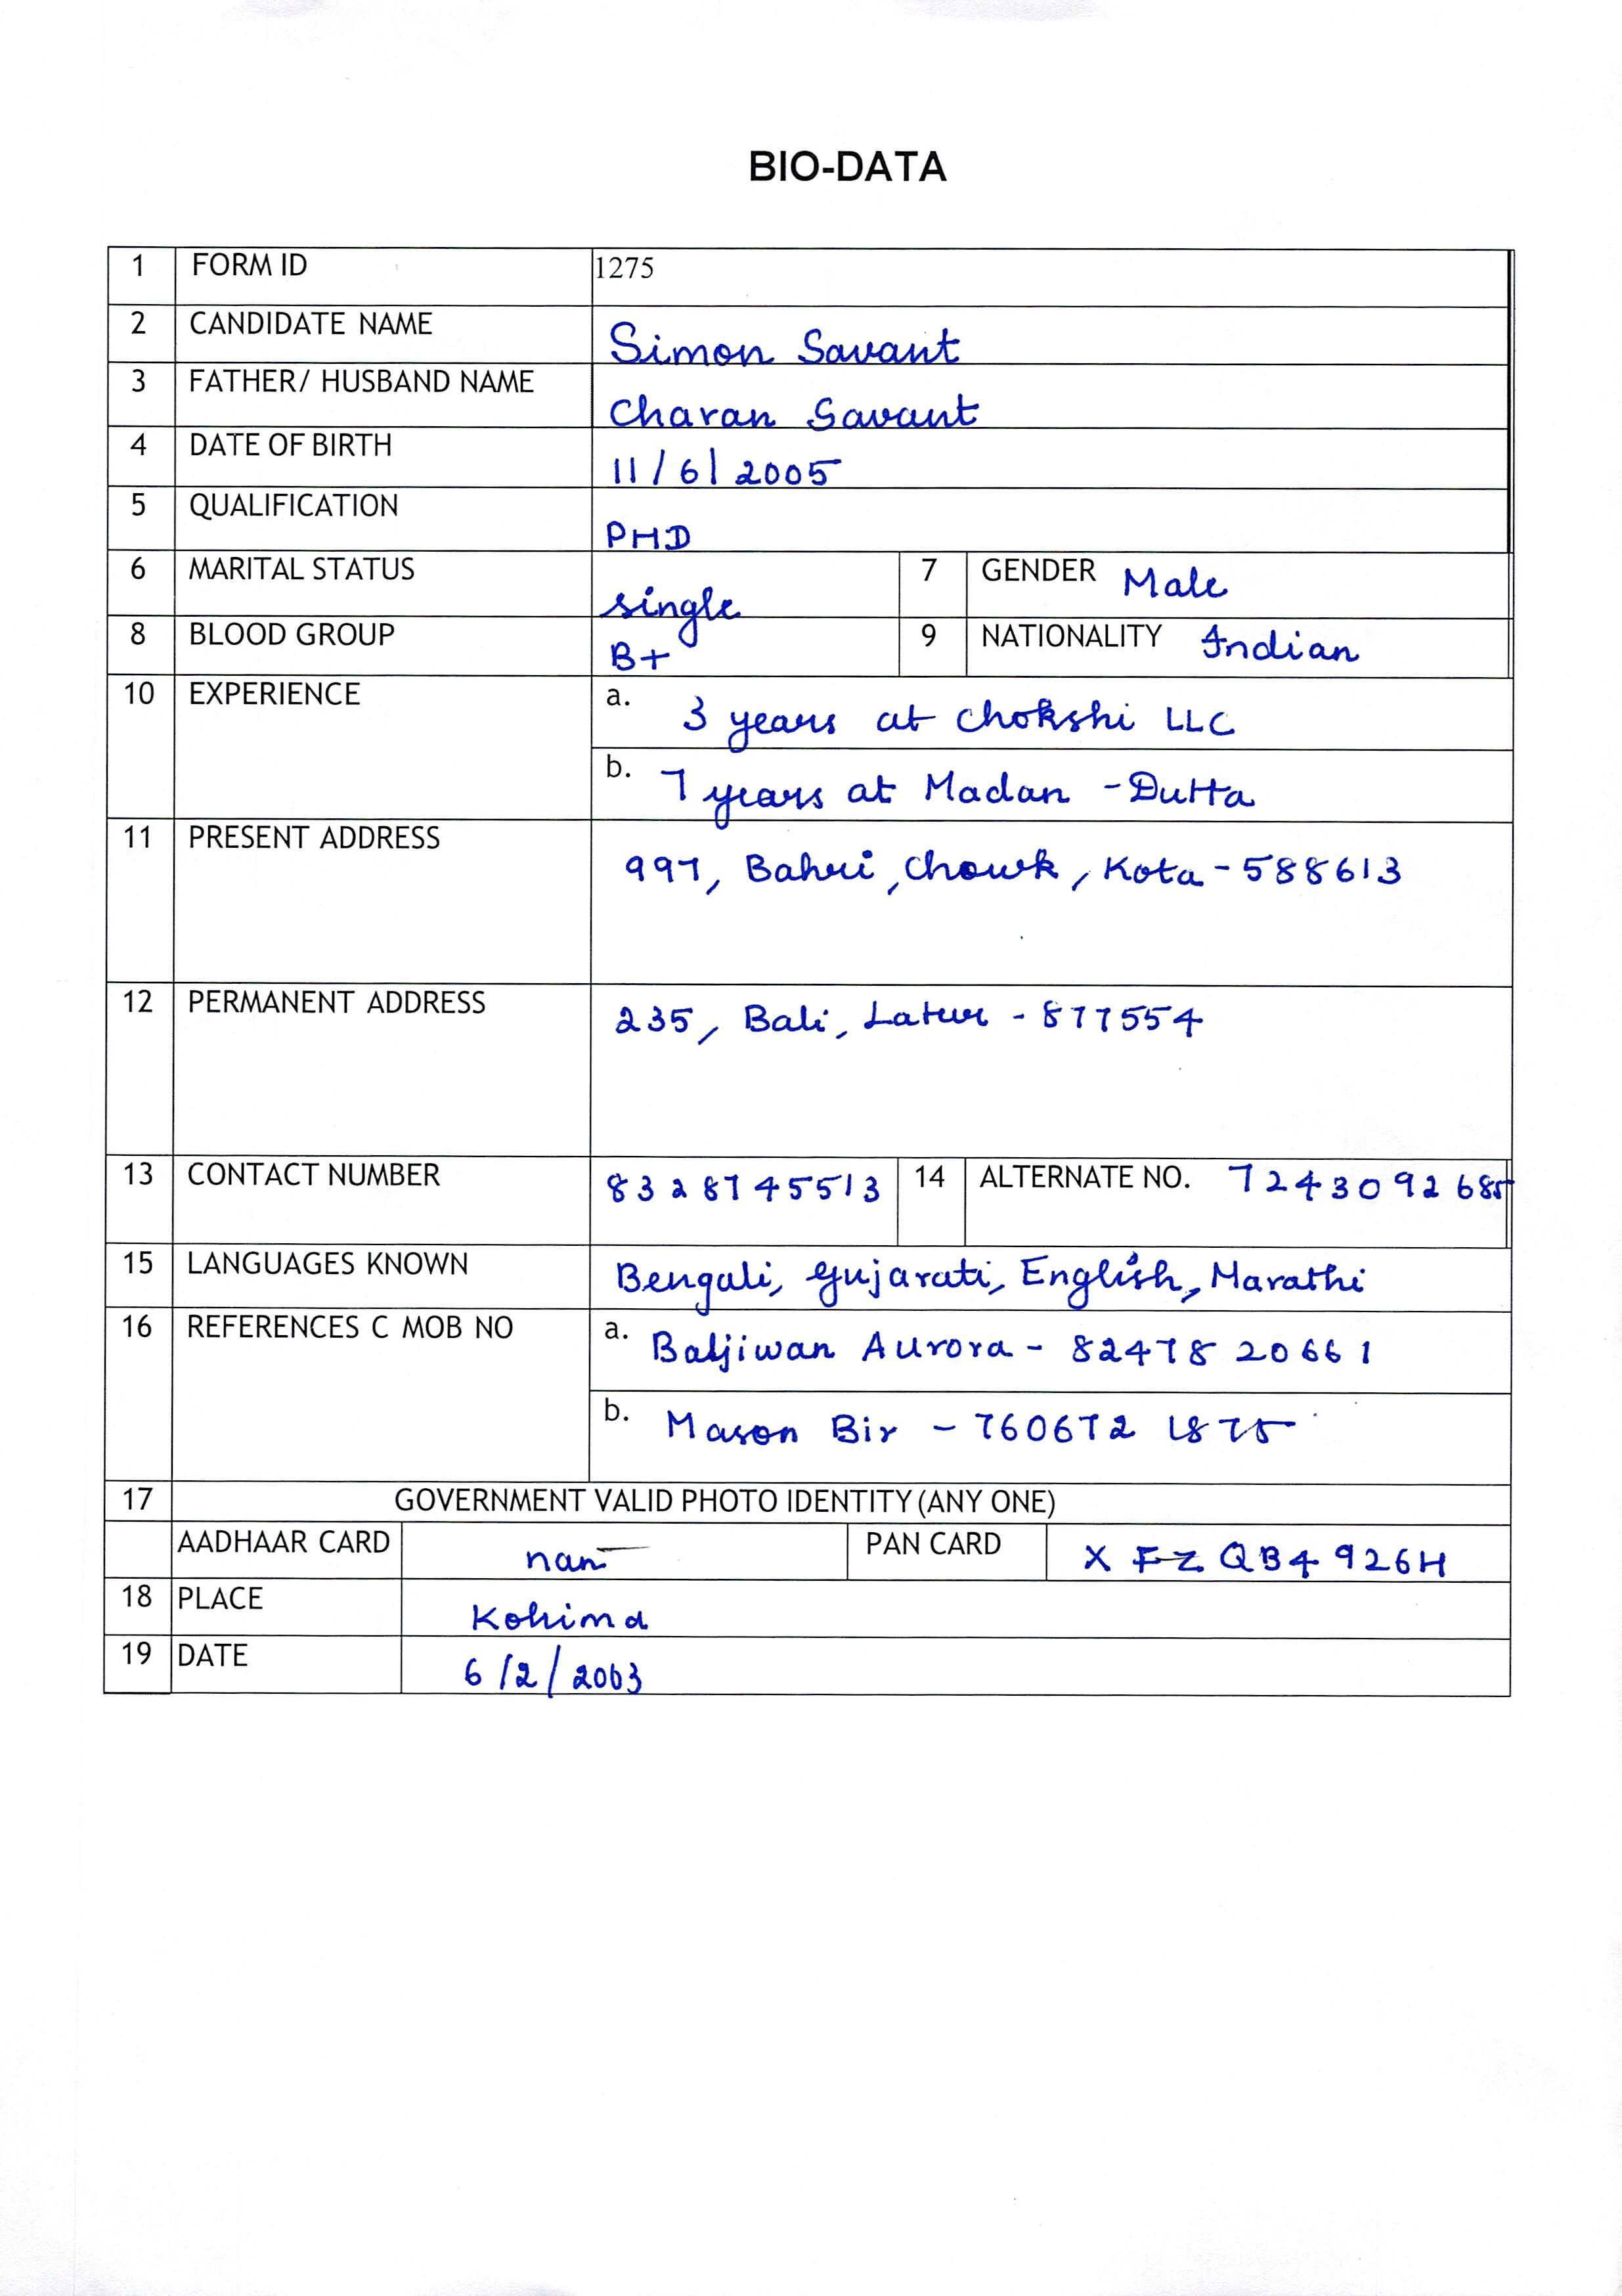 BIO-DATA
1 FORM ID 1275
2 CANDIDATE NAME Simon Savant
3 FATHER/ HUSBAND NAME Charan Savant
4 DATE OF BIRTH 11/6/2005
5 QUALIFICATION PHD
6 MARITAL STATUS single 7 GENDER Male
8 BLOOD GROUP B+ 9 NATIONALITY Indian
10 EXPERIENCE a. 3 years at Chokshi LLC
b. 7 years at Madan -Dutta
11 PRESENT ADDRESS 997, Bahri, Chowk, Kota-588613
12 PERMANENT ADDRESS 235, Bali, Latur - 877554
13 CONTACT NUMBER 8328745513 14 ALTERNATE NO. 7243092685
15 LANGUAGES KNOWN Bengali, Gujarati, English, Marathi
16 REFERENCES C MOB NO a. Baljiwan Aurora - 8247820661
b. Mason Bir - 7606721875
17 GOVERNMENT VALID PHOTO IDENTITY (ANY ONE)
AADHAAR CARD nan PAN CARD XFZQB4926H
18 PLACE Kohima
19 DATE 6/2/2003